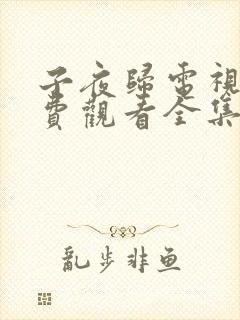 子夜歸電視
費觀看全集
亂步非鱼